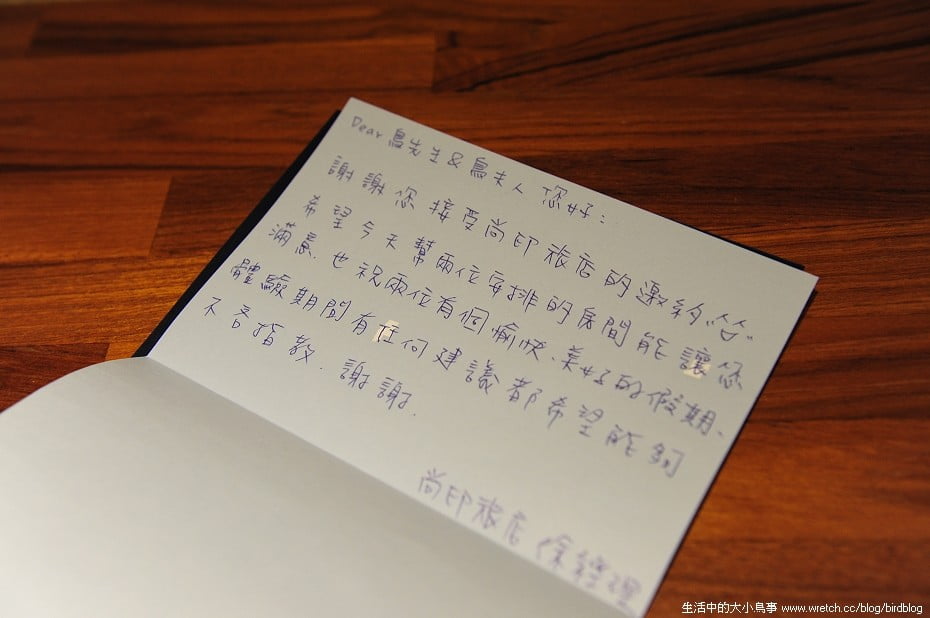 Dear 鳥先生&鳥夫人 您好:
謝謝您接受尚印旅店的邀約^^。
希望今天幫兩位安排的房間能讓您
滿意、也祝兩位有個愉快、美好的假期、
體驗期間有任何建議都希望能夠
不吝指教. 謝謝.
尚印旅店 徐經理
生活中的大小鳥事 www.wretch.cc/blog/birdblog